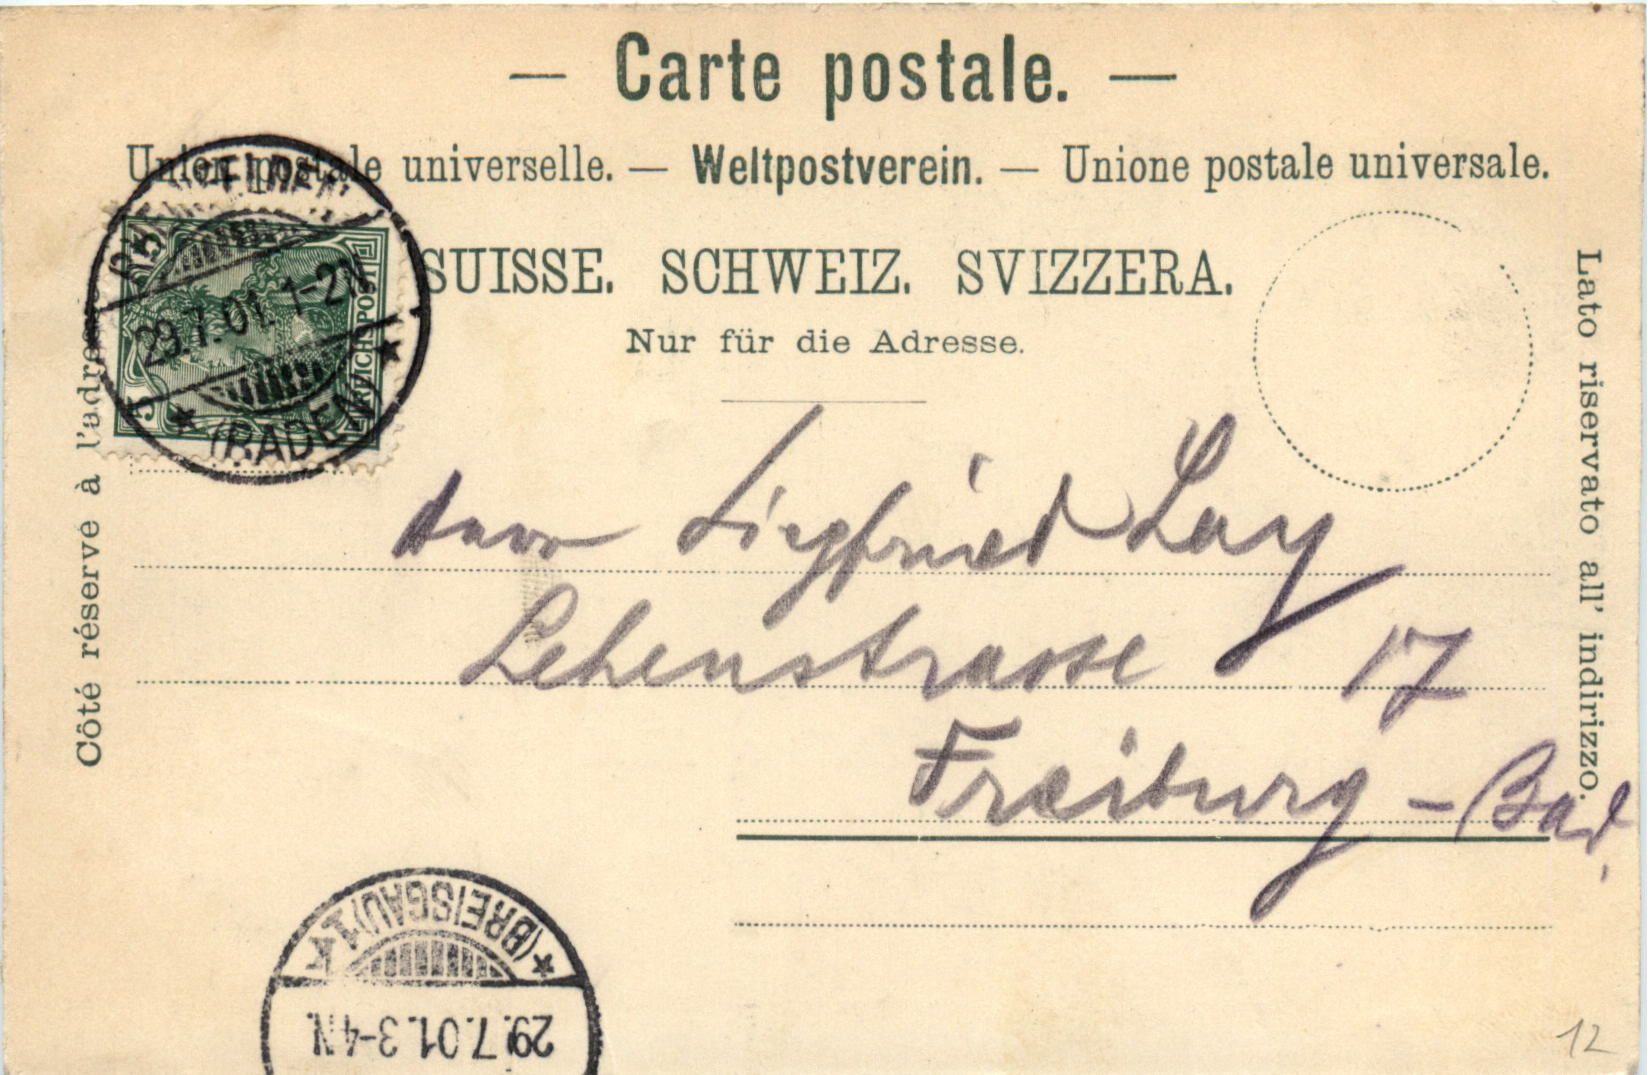 — Carte postale. —
Union postale universelle. — Weltpostverein. — Unione postale universale.
SUISSE. SCHWEIZ. SVIZZERA.
Nur für die Adresse.
Côté réservé à l'adres
Lato riservato all' indirizzo.
29.7.01. 1-2N
(BADEN)
REICHSPOST
5
5
Herrn Siegfried Lay
Lehenstrasse 17
Freiburg - Bad.
(BREISGAU) 1
29.7.01. 3-4N.
12